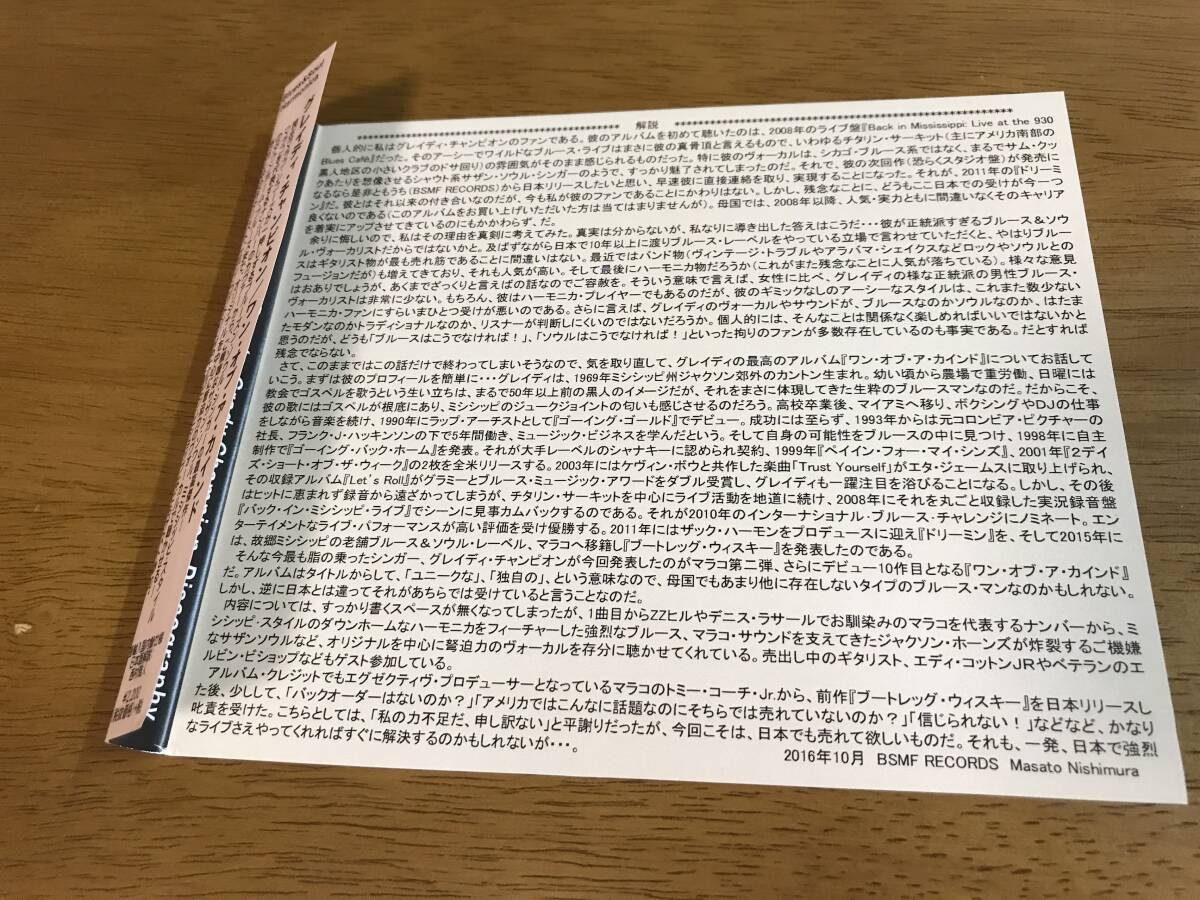 解説
個人的に私はグレイディ・チャンピオンのファンである。彼のアルバムを初めて聴いたのは、2008年のライブ盤『Back in Mississippi: Live at the 930
Blues Café』だった。そのアーシーでワイルドなブルース・ライブはまさに彼の真骨頂と言えるもので、いわゆるチタリン・サーキット(主にアメリカ南部の
黒人地区の小さいクラブのドサ回り)の雰囲気がそのまま感じられるものだった。特に彼のヴォーカルは、シカゴ・ブルース系ではなく、まるでサム・クッ
クあたりを想像させるシャウト系サザン・ソウル・シンガーのようで、すっかり魅了されてしまったのだ。それで、彼の次回作(恐らくスタジオ盤)が発売に
なるなら是非ともうち(BSMF RECORDS)から日本リリースしたいと思い、早速彼に直接連絡を取り、実現することになった。それが、2011年の『ドリーミ
ン』だ。彼とはそれ以来の付き合いなのだが、今も私が彼のファンであることにかわりはない。しかし、残念なことに、どうもここ日本での受けが今一つ
良くないのである(このアルバムをお買い上げいただいた方は当てはまりませんが)。母国では、2008年以降、人気・実力ともに間違いなくそのキャリア
を着実にアップさせてきているのにもかかわらず、だ。
余りに悔しいので、私はその理由を真剣に考えてみた。真実は分からないが、私なりに導き出した答えはこうだ・・・彼が正統派すぎるブルース＆ソウ
ル・ヴォーカリストだからではないかと。及ばずながら日本で10年以上に渡りブルース・レーベルをやっている立場で言わせていただくと、やはりブルー
スはギタリスト物が最も売れ筋であることに間違いはない。最近ではバンド物(ヴィンテージ・トラブルやアラバマ・シェイクスなどロックやソウルとの
フュージョンだが)も増えてきており、それも人気が高い。そして最後にハーモニカ物だろうか(これがまた残念なことに人気が落ちている)。様々な意見
はおありでしょうが、あくまでざっくりと言えばの話なのでご容赦を。そういう意味で言えば、女性に比べ、グレイディの様な正統派の男性ブルース・
ヴォーカリストは非常に少ない。もちろん、彼はハーモニカ・プレイヤーでもあるのだが、彼のギミックなしのアーシーなスタイルは、これまた数少ない
ハーモニカ・ファンにすらいまひとつ受けが悪いのである。さらに言えば、グレイディのヴォーカルやサウンドが、ブルースなのかソウルなのか、はたま
たモダンなのかトラディショナルなのか、リスナーが判断しにくいのではないだろうか。個人的には、そんなことは関係なく楽しめればいいではないかと
思うのだが、どうも「ブルースはこうでなければ！」、「ソウルはこうでなければ！」といった拘りのファンが多数存在しているのも事実である。だとすれば
残念でならない。
さて、このままではこの話だけで終わってしまいそうなので、気を取り直して、グレイディの最高のアルバム『ワン・オブ・ア・カインド』についてお話して
いこう。まずは彼のプロフィールを簡単に・・・グレイディは、1969年ミシシッピ州ジャクソン郊外のカントン生まれ。幼い頃から農場で重労働、日曜には
教会でゴスペルを歌うという生い立ちは、まるで50年以上前の黒人のイメージだが、それをまさに体現してきた生粋のブルースマンなのだ。だからこそ、
彼の歌にはゴスペルが根底にあり、ミシシッピのジュークジョイントの匂いも感じさせるのだろう。高校卒業後、マイアミへ移り、ボクシングやDJの仕事
をしながら音楽を続け、1990年にラップ・アーチストとして『ゴーイング・ゴールド』でデビュー。成功には至らず、1993年からは元コロンビア・ピクチャーの
社長、フランク・J・ハッキンソンの下で5年間働き、ミュージック・ビジネスを学んだという。そして自身の可能性をブルースの中に見つけ、1998年に自主
制作で『ゴーイング・バック・ホーム』を発表。それが大手レーベルのシャナキーに認められ契約、1999年『ペイイン・フォー・マイ・シンズ』、2001年『2デイ
ズ・ショート・オブ・ザ・ウィーク』の2枚を全米リリースする。2003年にはケヴィン・ボウと共作した楽曲「Trust Yourself」がエタ・ジェームスに取り上げられ、
その収録アルバム『Let's Roll』がグラミーとブルース・ミュージック・アワードをダブル受賞し、グレイディも一躍注目を浴びることになる。しかし、その後
はヒットに恵まれず録音から遠ざかってしまうが、チタリン・サーキットを中心にライブ活動を地道に続け、2008年にそれを丸ごと収録した実況録音盤
『バック・イン・ミシシッピ・ライブ』でシーンに見事カムバックするのである。それが2010年のインターナショナル・ブルース・チャレンジにノミネート。エン
ターテイメントなライブ・パフォーマンスが高い評価を受け優勝する。2011年にはザック・ハーモンをプロデュースに迎え『ドリーミン』を、そして2015年に
は、故郷ミシシッピの老舗ブルース＆ソウル・レーベル、マラコへ移籍し『ブートレッグ・ウィスキー』を発表したのである。
そんな今最も脂の乗ったシンガー、グレイディ・チャンピオンが今回発表したのがマラコ第二弾、さらにデビュー10作目となる『ワン・オブ・ア・カインド』
だ。アルバムはタイトルからして、「ユニークな」、「独自の」、という意味なので、母国でもあまり他に存在しないタイプのブルース・マンなのかもしれない。
しかし、逆に日本とは違ってそれがあちらでは受けていると言うことなのだ。
内容については、すっかり書くスペースが無くなってしまったが、1曲目からZZヒルやデニス・ラサールでお馴染みのマラコを代表するナンバーから、ミ
シシッピ・スタイルのダウンホームなハーモニカをフィーチャーした強烈なブルース、マラコ・サウンドを支えてきたジャクソン・ホーンズが炸裂するご機嫌
なサザンソウルなど、オリジナルを中心に驚迫力のヴォーカルを存分に聴かせてくれている。売出し中のギタリスト、エディ・コットンJRやベテランのエ
ルビン・ビショップなどもゲスト参加している。
アルバム・クレジットでもエグゼクティヴ・プロデューサーとなっているマラコのトミー・コーチ・Jr.から、前作『ブートレッグ・ウィスキー』を日本リリースし
た後、少しして、「バックオーダーはないのか？」「アメリカではこんなに話題なのにそちらでは売れていないのか？」「信じられない！」などなど、かなり
叱責を受けた。こちらとしては、「私の力不足だ、申し訳ない」と平謝りだったが、今回こそは、日本でも売れて欲しいものだ。それも、一発、日本で強烈
なライブさえやってくれればすぐに解決するのかもしれないが・・・。
2016年10月 BSMF RECORDS Masato Nishimura
グレイディ・チャンピオン
ワン・オブ・ア・カインド
Grady Champion Discography